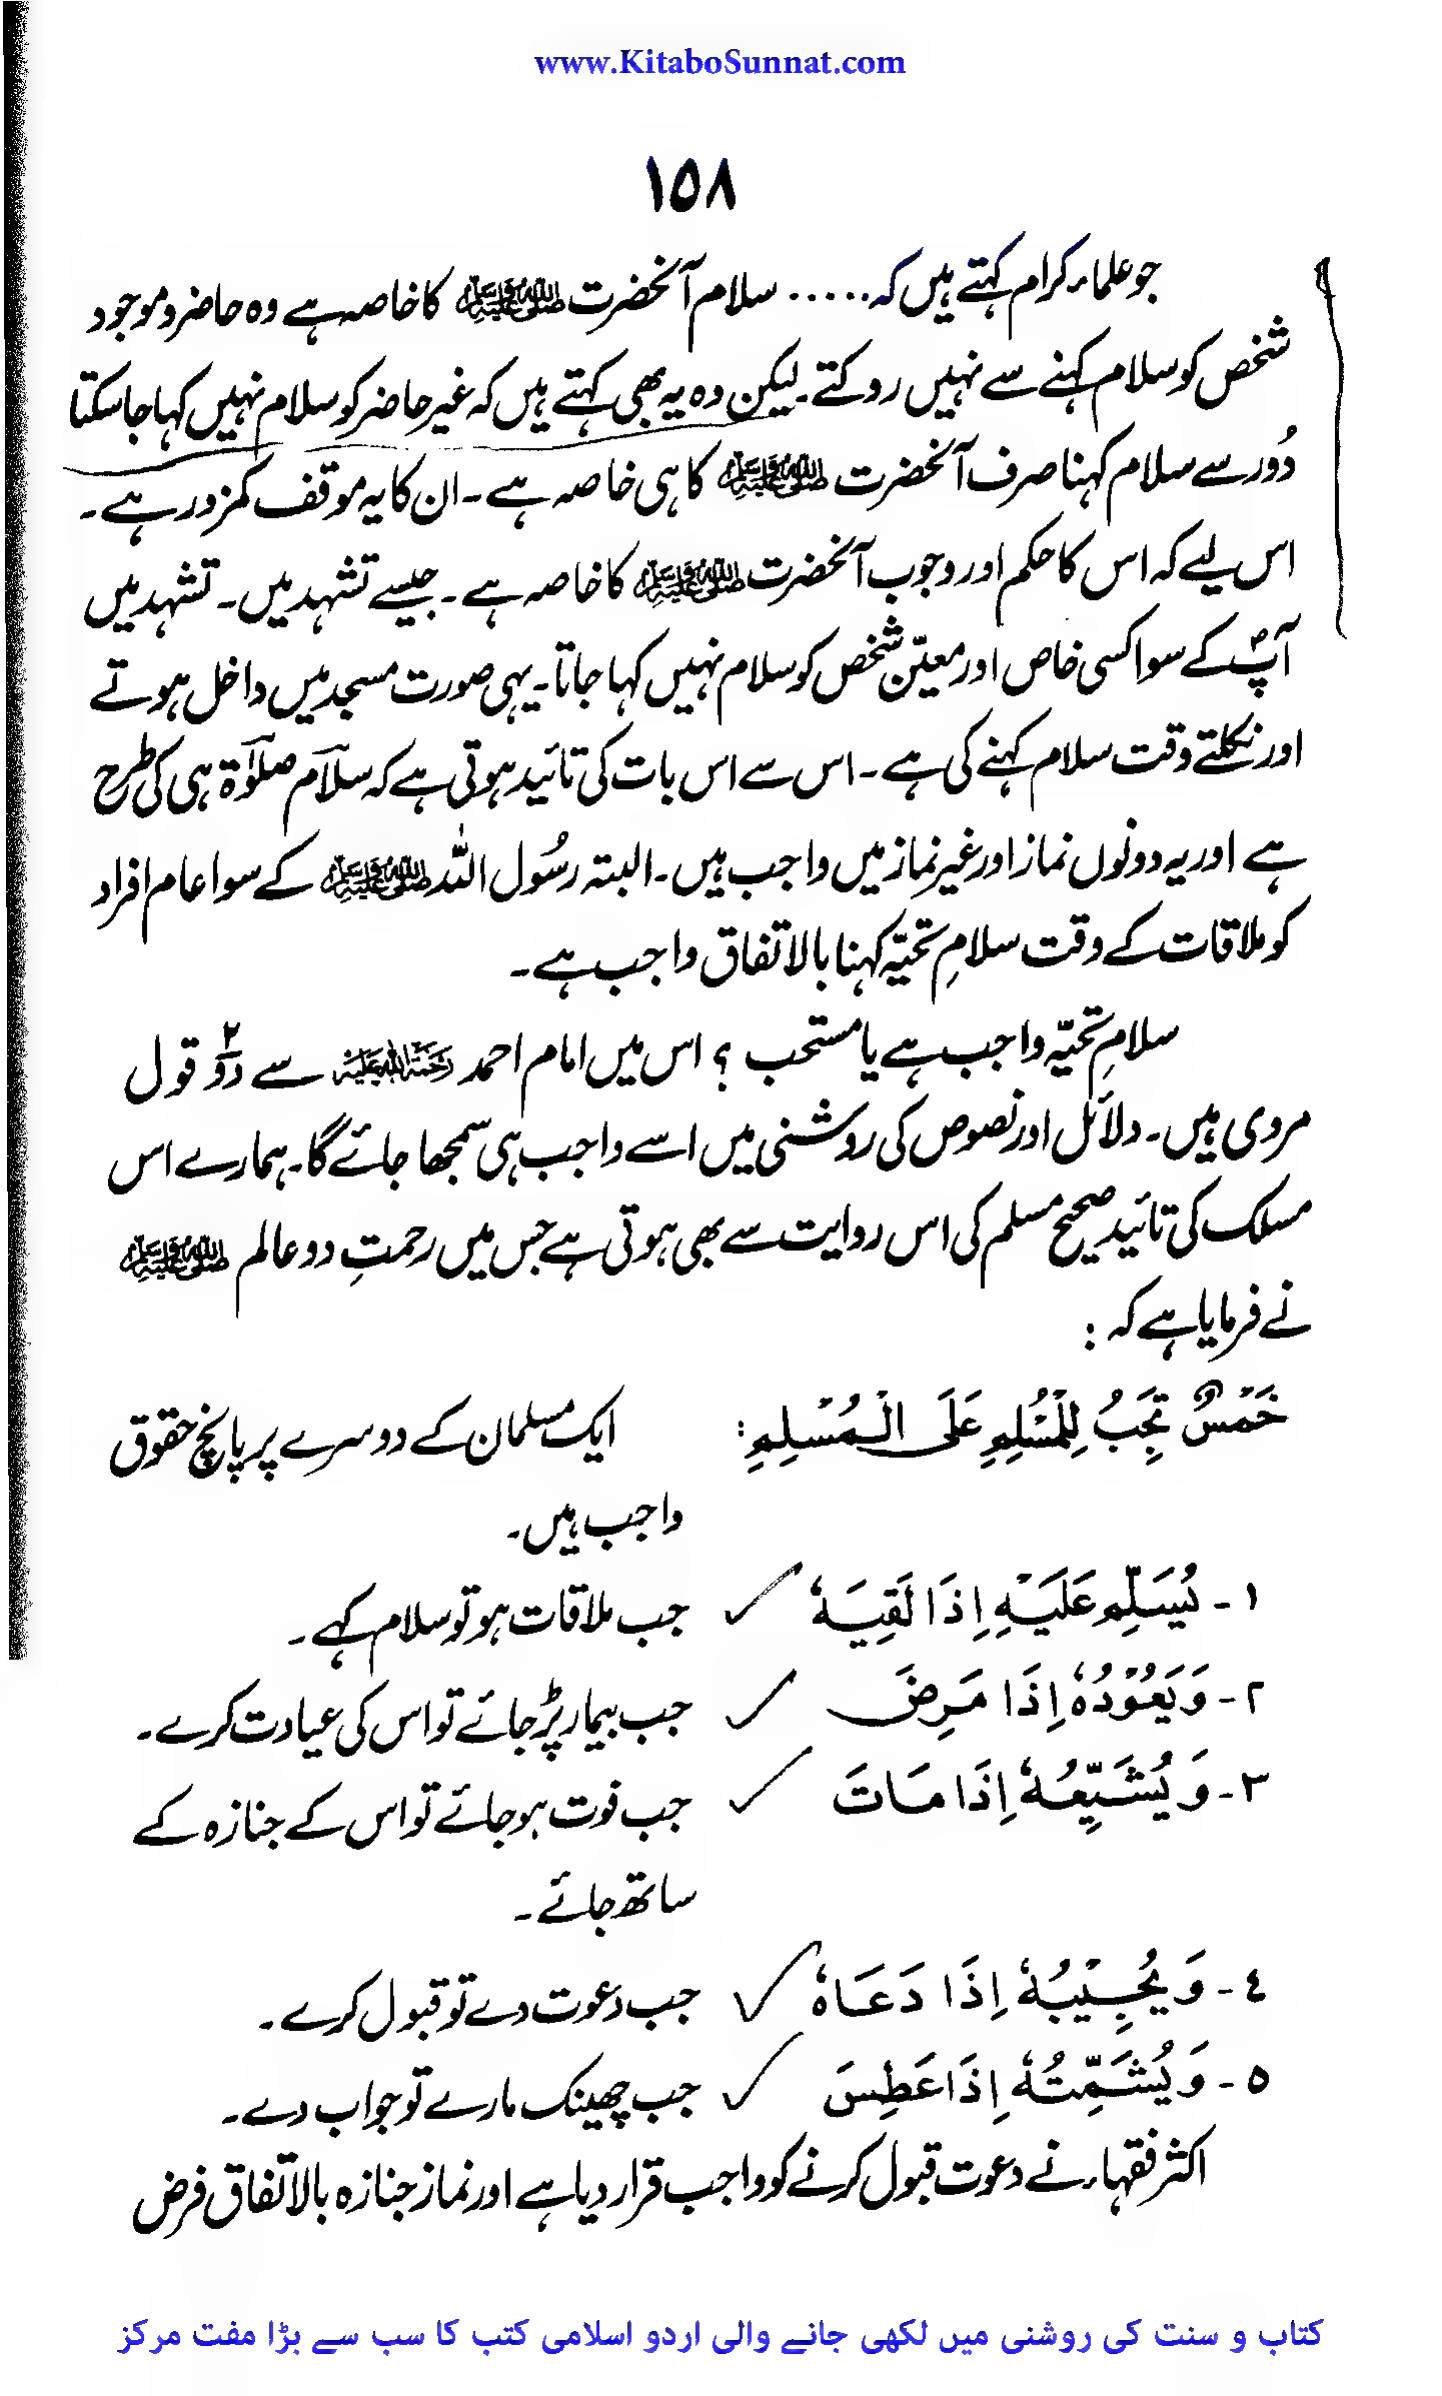 www.KitaboSunnat.com
١٥٨
جو علماء کرام کہتے ہیں کہ ..... سلام آنحضرت ﷺ کا خاصہ ہے وہ حاضر و موجود
شخص کو سلام کہنے سے نہیں روکتے۔ لیکن وہ یہ بھی کہتے ہیں کہ غیر حاضر کو سلام نہیں کہا جا سکتا
دُور سے سلام کہنا صرف آنحضرت ﷺ کا ہی خاصہ ہے۔ ان کا یہ موقف کمزور ہے۔
اس لیے کہ اس کا حکم اور وجوب آنحضرت ﷺ کا خاصہ ہے۔ جیسے تشہد میں۔ تشہد میں
آپؐ کے سوا کسی خاص اور معیّن شخص کو سلام نہیں کہا جاتا۔ یہی صورت مسجد میں داخل ہوتے
اور نکلتے وقت سلام کہنے کی ہے۔ اس سے اس بات کی تائید ہوتی ہے کہ سلام صلوٰۃ ہی کی طرح
ہے اور یہ دونوں نماز اور غیر نماز میں واجب ہیں۔ البتہ رسُول اللہ ﷺ کے سوا عام افراد
کو ملاقات کے وقت سلامِ تحیّہ کہنا بالاتفاق واجب ہے۔
سلامِ تحیّہ واجب ہے یا مستحب ؟ اس میں امام احمد رحمۃ اللہ علیہ سے دو۲ قول
مروی ہیں۔ دلائل اور نصوص کی روشنی میں اسے واجب ہی سمجھا جائے گا۔ ہمارے اس
مسلک کی تائید صحیح مسلم کی اس روایت سے بھی ہوتی ہے جس میں رحمتِ دو عالم ﷺ
نے فرمایا ہے کہ :
خَمْسٌ تَجِبُ لِلْمُسْلِمِ عَلَى الْمُسْلِمِ: ایک مسلمان کے دوسرے پر پانچ حقوق
واجب ہیں۔
١- يُسَلِّمِ عَلَيْهِ اِذَا لَقِيَهٗ ✓ جب ملاقات ہو تو سلام کہے۔
٢- وَيَعُوْدُهٗ اِذَا مَرِضَ ✓ جب بیمار پڑ جائے تو اس کی عیادت کرے۔
٣- وَيُشَيِّعُهٗ اِذَا مَاتَ ✓ جب فوت ہو جائے تو اس کے جنازہ کے
ساتھ جائے۔
٤- وَيُجِيْبُهٗ اِذَا دَعَاهٗ ✓ جب دعوت دے تو قبول کرے۔
٥- وَيُشَمِّتُهٗ اِذَا عَطِسَ ✓ جب چھینک مارے تو جواب دے۔
اکثر فقہاء نے دعوت قبول کرنے کو واجب قرار دیا ہے اور نماز جنازہ بالاتفاق فرض
کتاب و سنت کی روشنی میں لکھی جانے والی اردو اسلامی کتب کا سب سے بڑا مفت مرکز